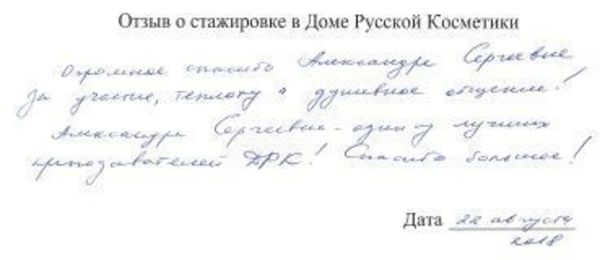 Отзыв о стажировке в Доме Русской Косметики
Огромное спасибо Александре Сергеевне
за участие, теплоту и душевное общение!
Александра Сергеевна - один из лучших
преподавателей ДРК! Спасибо большое!
Дата 22 августа
2018